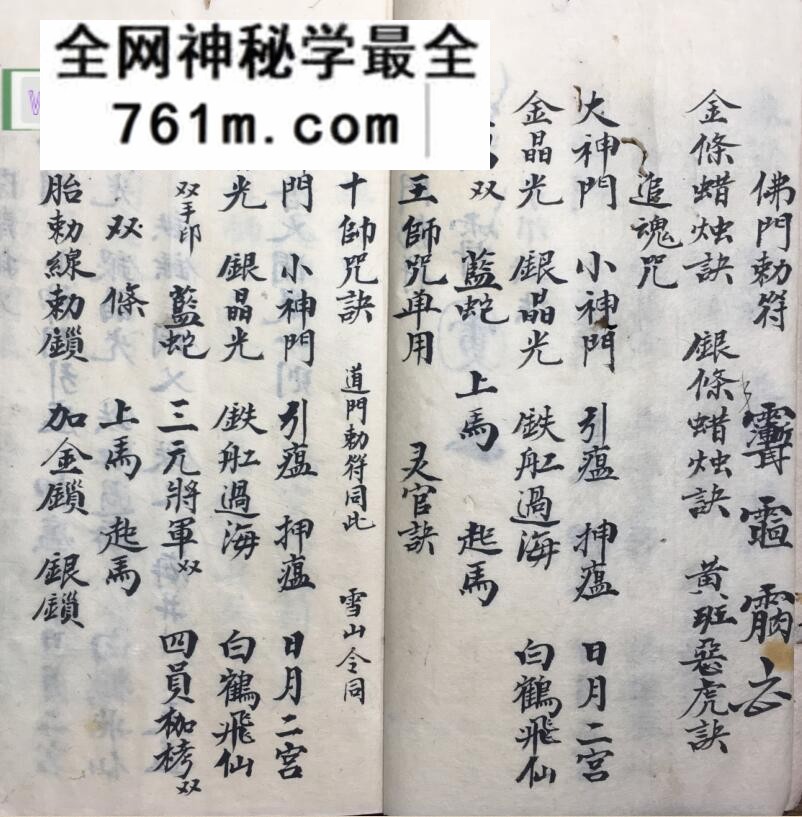 全网神秘学最全
761m.com
W
佛門勅符
金條蜡烛訣 銀條蜡烛訣 黃班惡虎訣
追魂咒
大神門 小神門 引瘟 押瘟 日月二宮
金晶光 銀晶光 鉄舡過海 白鶴飛仙
双 藍蛇 上馬 起馬
王師咒車用 灵官訣
十帥咒訣 道門勅符同此 雪山令同
門 小神門 引瘟 押瘟 日月二宮
光 銀晶光 鉄舡過海 白鶴飛仙
双手印 藍蛇 三元將軍双 四員枷栲双
双條 上馬 起馬
胎勅線勅鎖 加金鎖 銀鎖